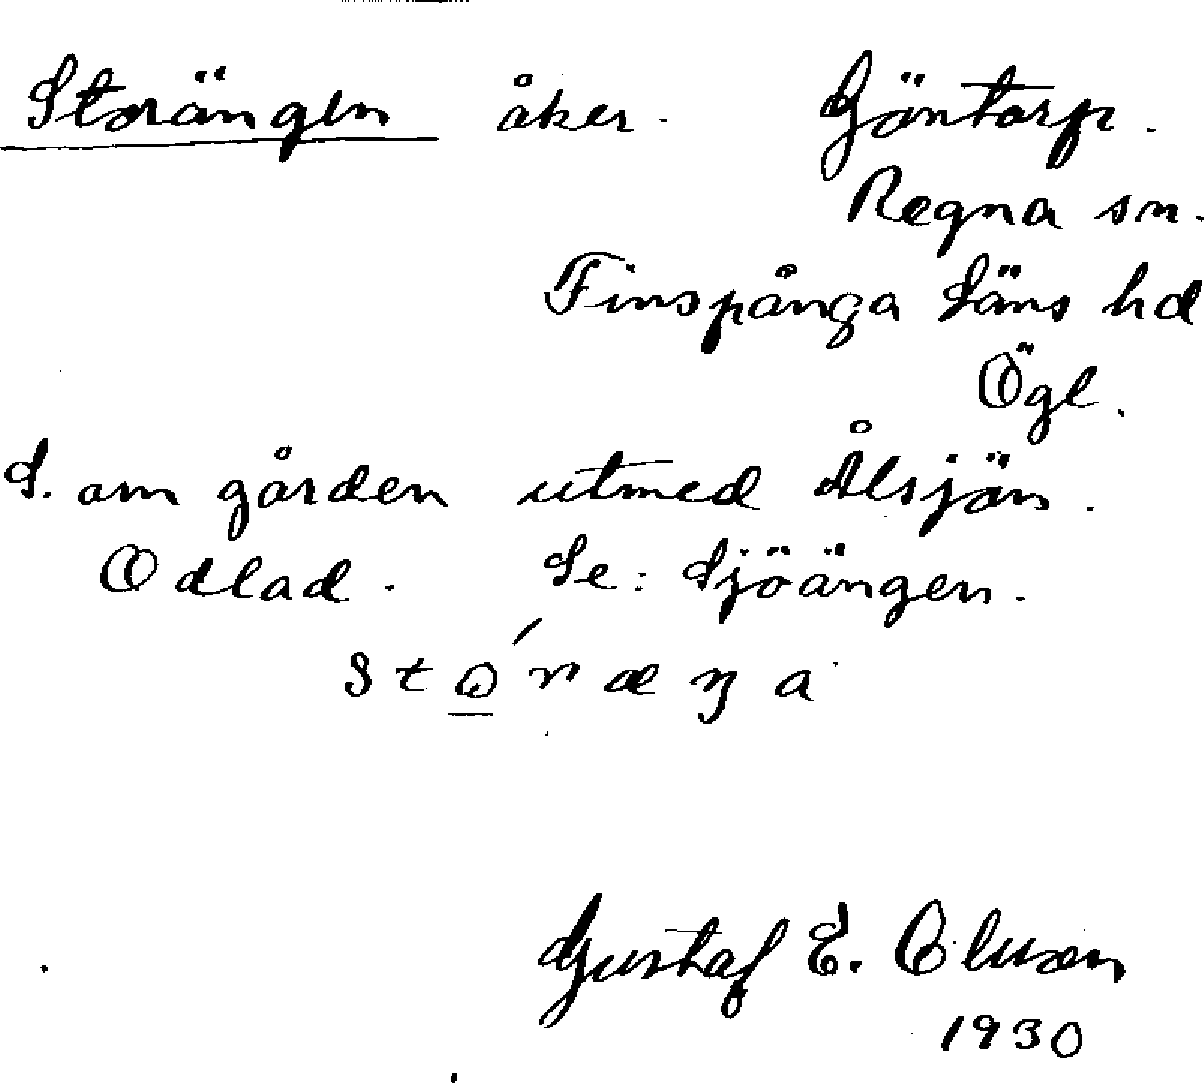 Storängen åker. Göntorp.
Regna sn.
Finspånga läns hd
Ögl.
S. om gården utmed Ålsjön.
Odlad. Se: Sjöängen.
Gustaf E. Olsson
1930